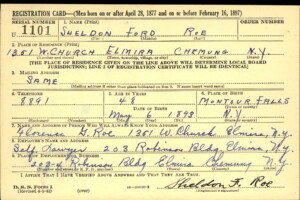 REGISTRATION CARD—(Men born on or after April 28, 1877 and on or before February 16, 1897)
SERIAL NUMBER 1. NAME (Print) ORDER NUMBER
U 1101 SHELDON FORD ROE
2. PLACE OF RESIDENCE (Print)
1351 W. CHURCH ELMIRA CHEMUNG N.Y.
[THE PLACE OF RESIDENCE GIVEN ON THE LINE ABOVE WILL DETERMINE LOCAL BOARD
JURISDICTION; LINE 2 OF REGISTRATION CERTIFICATE WILL BE IDENTICAL]
3. MAILING ADDRESS
SAME
4. TELEPHONE 5. AGE IN YEARS 6. PLACE OF BIRTH
8891 48 MONTOUR FALLS
DATE OF BIRTH
May 6, 1893 N.Y.
7. NAME AND ADDRESS OF PERSON WHO WILL ALWAYS KNOW YOUR ADDRESS
Florence G. Roe 1351 W. Church Elmira, N.Y.
8. EMPLOYER'S NAME AND ADDRESS
Self Lawyer 203 Robinson Bldg. Elmira, N.Y.
9. PLACE OF EMPLOYMENT OR BUSINESS
203-4 Robinson Bldg. Elmira Chemung N.Y.
I AFFIRM THAT I HAVE VERIFIED ABOVE ANSWERS AND THAT THEY ARE TRUE.
D. S. S. Form 1
Sheldon F. Roe